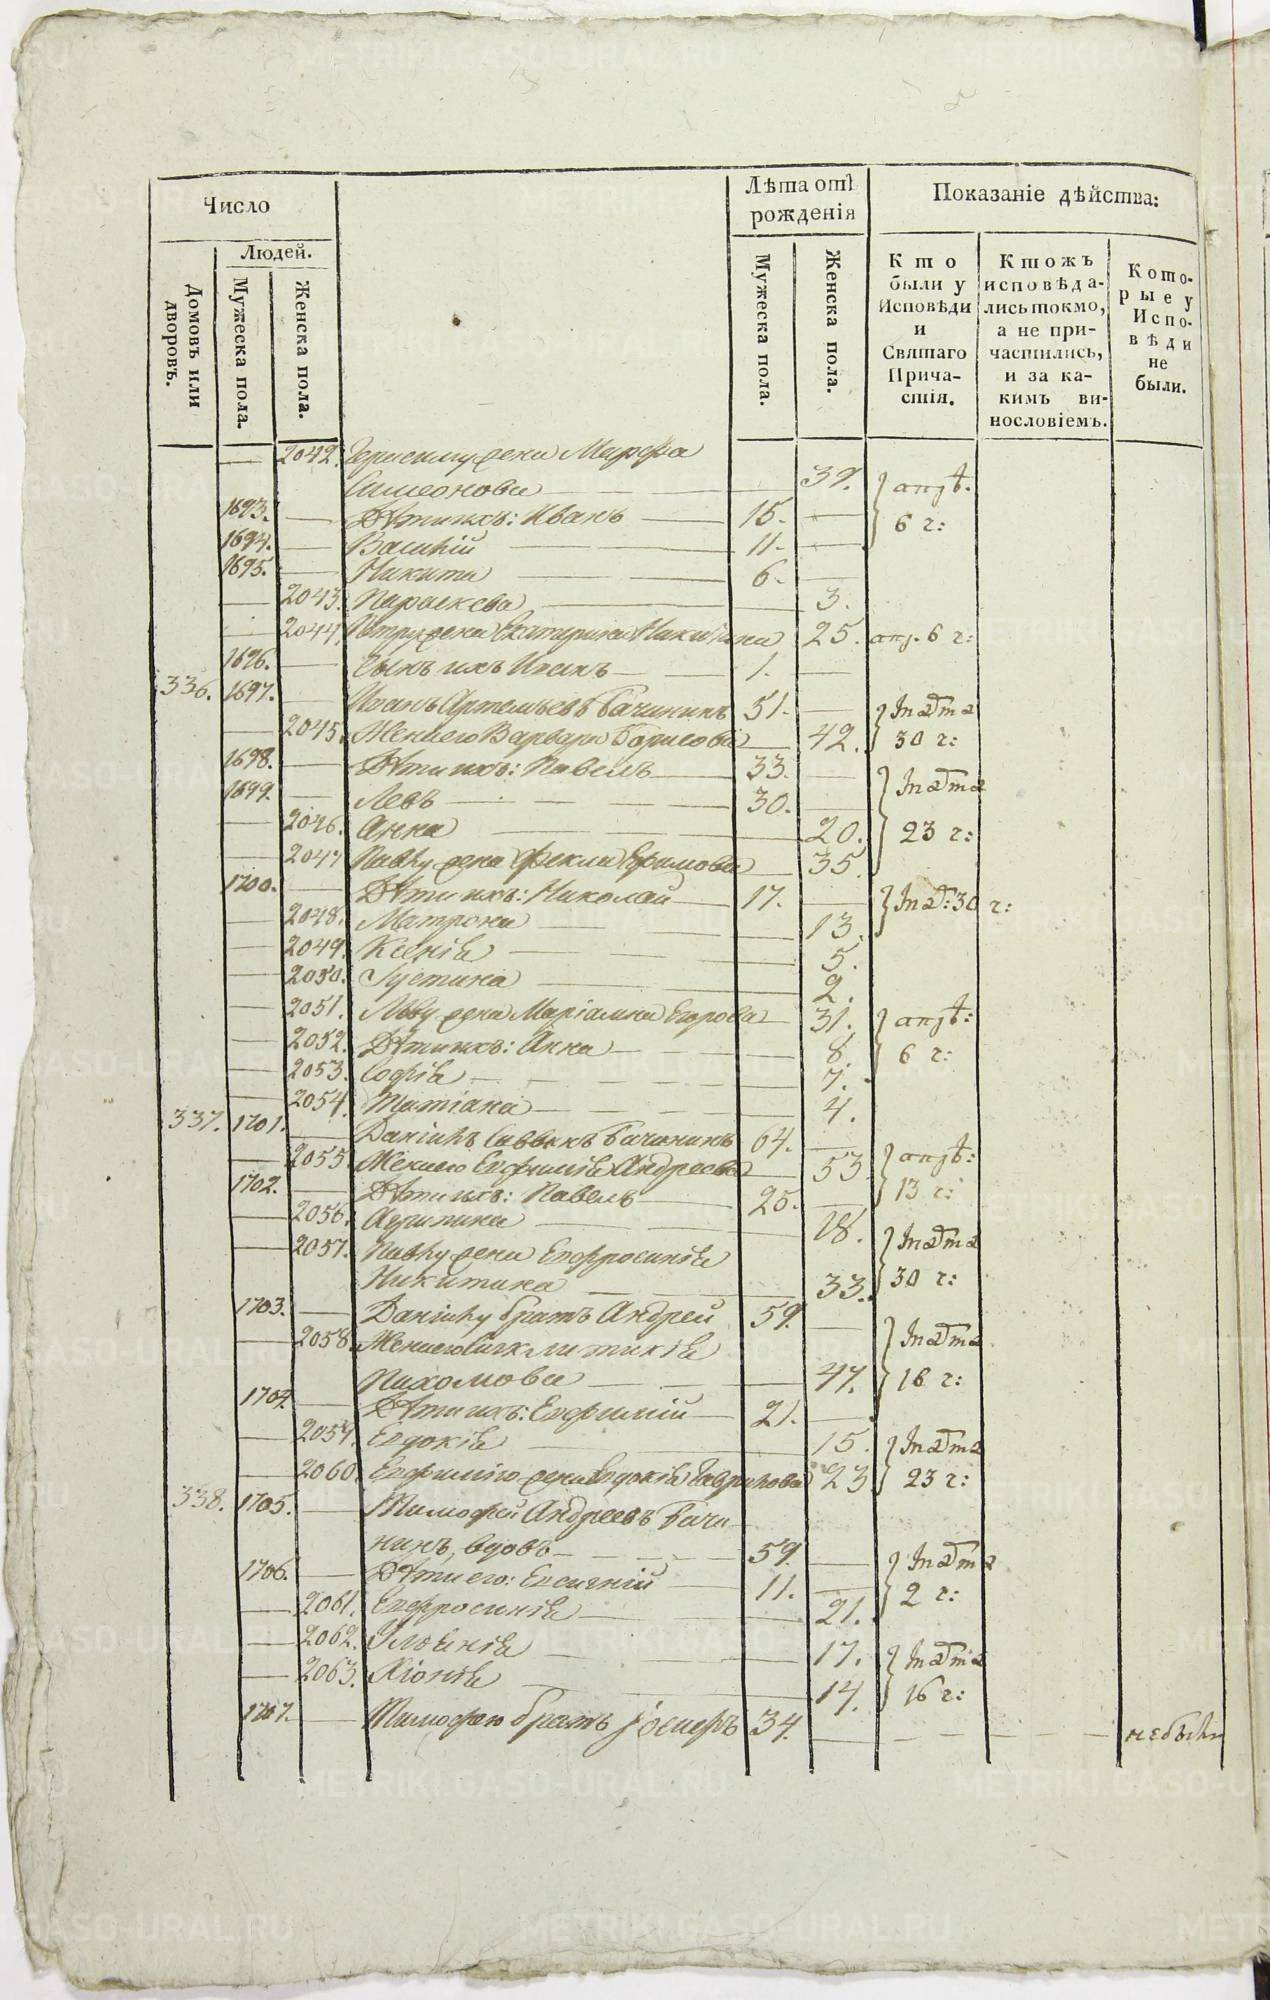 Число
Лѣта отъ рожденія
Показаніе дѣйства:
Людей.
Домовъ или дворовъ.
Мужеска пола.
Женска пола.
Мужеска пола.
Женска пола.
Кто были у Исповѣди и Святаго Причастія.
Ктожъ исповѣдались токмо, а не причастились, и за какимъ винословіемъ.
Которые у Исповѣди не были.
— 2042. жена Марѳа
Симеонова — 39. апрѣ.
1693. — Дѣти ихъ: Иванъ — 15. — 6 г:
1694. — Василій — 11. —
1695. — Никита — 6. —
— 2043. Параскева — 3.
— 2044. Петру жена Екатерина Никитина 25. апр. 6 г:
1696. — Сынъ ихъ — 1. —
336. 1697. — Иоанъ Артемьевъ Бачининъ 51. — Мата
— 2045. Жена его Варвара Борисова — 42. 30 г:
1698. — Дѣти ихъ: Павелъ — 33. —
1699. — Левъ — 30. — Мата
— 2046. Анна — 20. 23 г:
— 2047 Павлу жена Фекла Ефимова — 35.
1700. — Дѣти ихъ: Николай — 17. — 30 г:
— 2048. Матрона — 13.
— 2049. Ксенія — 5.
— 2050. Іустина — 2.
— 2051. Льву жена Маріамна Егорова — 31. апрѣ:
— 2052. Дѣти ихъ: Анна — 8. 6 г:
— 2053. Софія — 7.
— 2054. Татіана — 4.
337. 1701. — Даніилъ Саввинъ Бачининъ 64. —
— 2055. Жена его Евфимія Андреева — 53 апрѣ:
1702. — Дѣти ихъ: Павелъ — 25. — 13 г:
— 2056. Агрипина — 18.
— 2057. Павлу жена Евфросинія Мата
Никитина — 33. 30 г:
1703. — Даніилу братъ Андрей 59. —
— 2058 Жена его Синклитикія Мата
Пахомова — 47. 16 г:
1704 — Дѣти ихъ: Евфимій — 21. —
— 2059. Евдокія — 15. Мата
— 2060. Евфимію жена Евдокія Гаврилова 23 23 г:
338. 1705. — Тимофей Андреевъ Бачи-
нинъ, вдовъ — 59. — Мата
1706. — Дѣти его: Евсигній — 11. — 2 г:
— 2061. Евфросинія — 21.
— 2062. Улоянія — 17. Мата
— 2063. Хіонія — 14. 16 г:
1707. — Тимофею братъ Іосифъ 34. — не былъ
METRIKI.GASO-URAL.RU